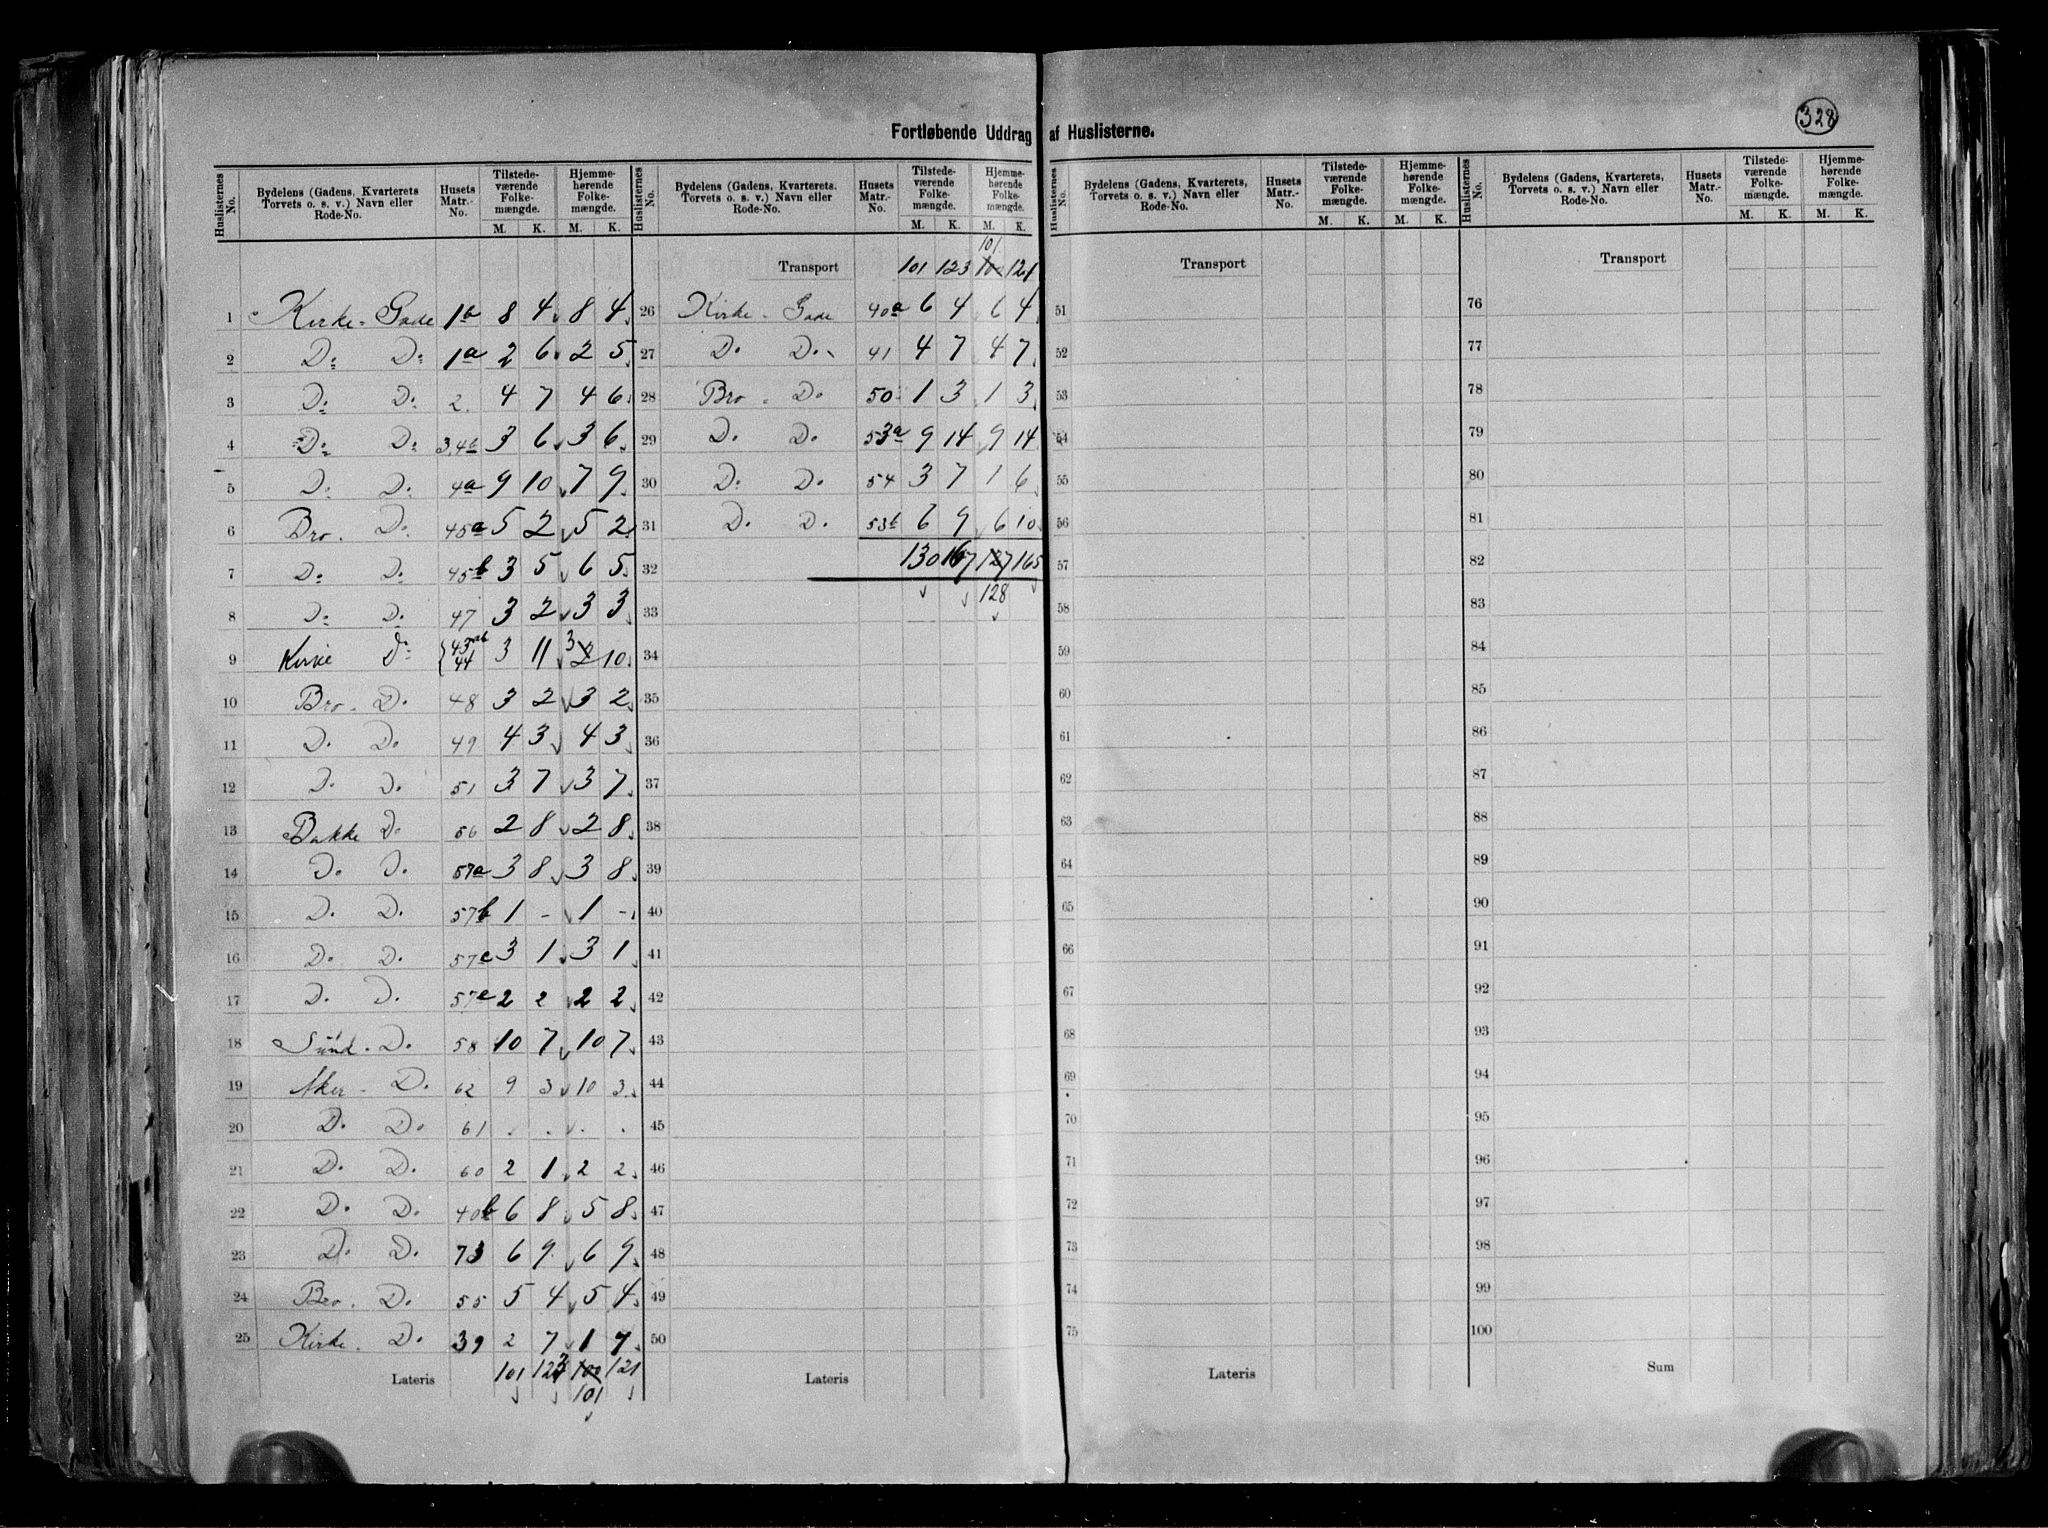 328
Fortløbende Uddrag af Huslisterne.
Huslisternes No. | Bydelens (Gadens, Kvarterets Torvets o. s. v.) Navn eller Rode-No. | Husets Matr.-No. | Tilstedeværende Folkemængde. M. K. | Hjemmehørende Folkemængde. M. K.
1 Kirke-Gade 1b 8 4 8 4
2 Do Do 1a 2 6 2 5
3 Do Do 2. 4 7 4 6
4 Do Do 3,4b 3 6 3 6
5 Do Do 4a 9 10 7 9
6 Bro. Do 45a 5 2 5 2
7 Do Do 45b 3 5 6 5
8 Do Do 47 3 2 3 3
9 Kirke Do 43ab 44 3 11 3 2 10
10 Bro. Do 48 3 2 3 2
11 Do Do 49 4 3 4 3
12 Do Do 51 3 7 3 7
13 Bakke Do 56 2 8 2 8
14 Do Do 57a 3 8 3 8
15 Do Do 57b 1 - 1 -
16 Do Do 57c 3 1 3 1
17 Do Do 57e 2 2 2 2
18 Sund. Do 58 10 7 10 7
19 Aker - Do 62 9 3 10 3
20 Do Do 61 . . . .
21 Do Do 60 2 1 2 2
22 Do Do 40b 6 8 5 8
23 Do Do 73 6 9 6 9
24 Bro. Do 55 5 4 5 4
25 Kirke. Do 39 2 7 1 7
Lateris 101 123 100 121
101
Huslisternes No. | Bydelens (Gadens, Kvarterets, Torvets o. s. v.) Navn eller Rode-No. | Husets Matr.-No. | Tilstedeværende Folkemængde. M. K. | Hjemmehørende Folkemængde. M. K.
101
Transport 101 123 100 121
26 Kirke-Gade 40a 6 4 6 4
27 Do Do 41 4 7 4 7
28 Bro. Do 50 1 3 1 3
29 Do Do 53a 9 14 9 14
30 Do Do 54 3 7 1 6
31 Do Do 53b 6 9 6 10
32 130 167 127 165
33 128
34
35
36
37
38
39
40
41
42
43
44
45
46
47
48
49
50
Lateris
Huslisternes No. | Bydelens (Gadens, Kvarterets, Torvets o. s. v.) Navn eller Rode-No. | Husets Matr.-No. | Tilstedeværende Folkemængde. M. K. | Hjemmehørende Folkemængde. M. K.
Transport
51
52
53
54
55
56
57
58
59
60
61
62
63
64
65
66
67
68
69
70
71
72
73
74
75
Lateris
Huslisternes No. | Bydelens (Gadens, Kvarterets, Torvets o. s. v.) Navn eller Rode-No. | Husets Matr.-No. | Tilstedeværende Folkemængde. M. K. | Hjemmehørende Folkemængde. M. K.
Transport
76
77
78
79
80
81
82
83
84
85
86
87
88
89
90
91
92
93
94
95
96
97
98
99
100
Sum